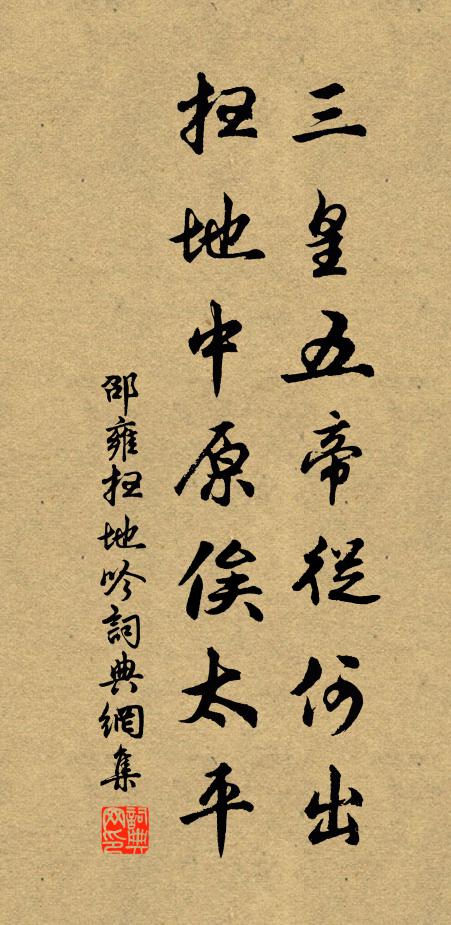 三皇五帝從何出
扫地中原俟太平
邵雍扫地吟詞典網集
詞典网印